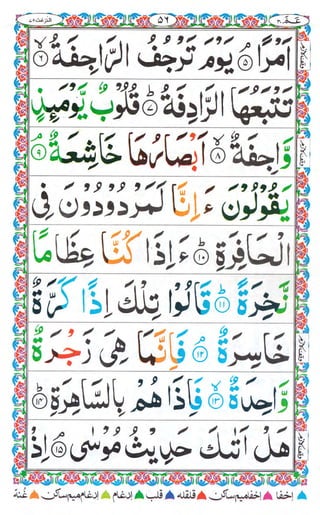 عـمّ ٣٠ ٥٢ النّٰزعٰت ٧٩
اَمْرًا ۘ﴿٥﴾ يَوْمَ تَرْجُفُ الرَّاجِفَةُ ۙ﴿٦﴾
تَتْبَعُهَا الرَّادِفَةُ ؕ﴿٧﴾ قُلُوْبٌ يَّوْمَئِذٍ
وَّاجِفَةٌ ۙ﴿٨﴾ اَبْصَارُهَا خَاشِعَةٌ ۘ﴿٩﴾
يَقُوْلُوْنَ ءَاِنَّا لَمَرْدُوْدُوْنَ فِى
الْحَافِرَةِ ؕ﴿١٠﴾ ءَاِذَا كُنَّا عِظَامًا
نَّخِرَةً ؕ﴿١١﴾ قَالُوْا تِلْكَ اِذًا كَرَّةٌ
خَاسِرَةٌ ۘ﴿١٢﴾ فَاِنَّمَا هِىَ زَجْرَةٌ
وَّاحِدَةٌ ۙ﴿١٣﴾ فَاِذَا هُمْ بِالسَّاهِرَةِ ؕ﴿١٤﴾
هَلْ اَتٰٮكَ حَدِيْثُ مُوْسٰى ۘ﴿١٥﴾ اِذْ
اخفا اخفامیم ساکن قلقله قلب ادغام ادغام میم ساکن غنة